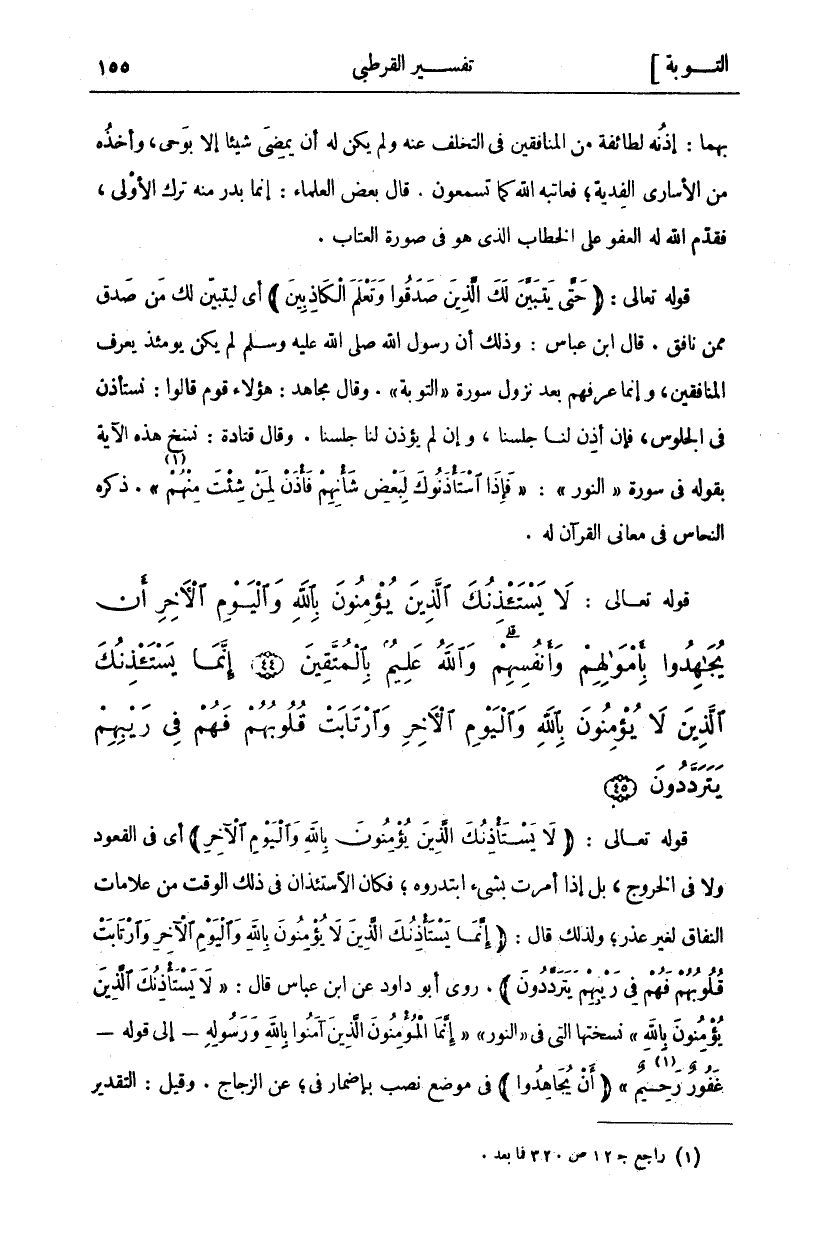 التـــوبة ] تفســـير القرطبى ١٥٥
بهما : إذنُه لطائفة من المنافقين فى التخلف عنه ولم يكن له أن يمضِىَ شيئا إلا بوَحى، وأخذُه
من الأسارى الفِدية؛ فعاتبه الله كما تسمعون . قال بعض العلماء : إنما بدر منه ترك الأوْلى ،
فقدّم الله له العفو على الخطاب الذى هو فى صورة العتاب .
قوله تعالى : ﴿ حَتَّى يَتَبَيَّنَ لَكَ الَّذِينَ صَدَقُوا وَتَعْلَمَ الْكَاذِبِينَ ﴾ أى ليتبيّن لك مَن صَدق
ممن نافق . قال ابن عباس : وذلك أن رسول الله صلى الله عليه وسلم لم يكن يومئذ يعرف
المنافقين، وإنما عرفهم بعد نزول سورة «التوبة» . وقال مجاهد : هؤلاء قوم قالوا : نستأذن
فى الجلوس، فإن أذِن لنا جلسنا ، وإن لم يؤذن لنا جلسنا . وقال قتادة : نسخ هذه الآية
بقوله فى سورة « النور » : « فَإِذَا ٱسْتَأْذَنُوكَ لِبَعْضِ شَأْنِهِمْ فَأْذَنْ لِمَنْ شِئْتَ مِنْهُمْ (١) » . ذكره
النحاس فى معانى القرآن له .
قوله تعـالى : لَا يَسْتَـْٔذِنُكَ ٱلَّذِينَ يُؤْمِنُونَ بِٱللَّهِ وَٱلْيَـوْمِ ٱلْآخِرِ أَن
يُجَـٰهِدُوا بِأَمْوَٰلِهِمْ وَأَنْفُسِهِمْ ۗ وَٱللَّهُ عَلِيمٌۢ بِٱلْمُتَّقِينَ ﴿٤٤﴾ إِنَّمَـا يَسْتَـْٔذِنُكَ
ٱلَّذِينَ لَا يُؤْمِنُونَ بِٱللَّهِ وَٱلْيَوْمِ ٱلْآخِرِ وَٱرْتَابَتْ قُلُوبُهُمْ فَهُمْ فِى رَيْبِهِمْ
يَتَرَدَّدُونَ ﴿٤٥﴾
قوله تعـالى : ﴿ لَا يَسْـتَأْذِنُكَ الَّذِينَ يُؤْمِنُونَ بِاللَّهِ وَٱلْيَوْمِ ٱلْآخِرِ ﴾ أى فى القعود
ولا فى الخروج ، بل إذا أمرت بشىء ابتدروه ؛ فكان الٱستئذان فى ذلك الوقت من علامات
النفاق لغير عذر؛ ولذلك قال : ﴿ إِنَّمَـا يَسْتَأْذِنُكَ الَّذِينَ لَا يُؤْمِنُونَ بِاللَّهِ وَٱلْيَوْمِ ٱلْآخِرِ وَٱرْتَابَتْ
قُلُوبُهُمْ فَهُمْ فِى رَيْبِهِمْ يَتَرَدَّدُونَ ﴾ . روى أبو داود عن ابن عباس قال : « لَا يَسْتَأْذِنُكَ ٱلَّذِينَ
يُؤْمِنُونَ بِاللَّهِ » نسختها التى فى «النور» « إِنَّمَا الْمُؤْمِنُونَ الَّذِينَ آمَنُوا بِاللَّهِ وَرَسُولِهِ — إلى قوله —
غَفُورٌ رَحِـيمٌ (١) » ﴿ أَنْ يُجَاهِدُوا ﴾ فى موضع نصب بإضمار فى؛ عن الزجاج . وقيل : التقدير
(١) راجع جـ ١٢ ص ٣٢٠ فما بعد .